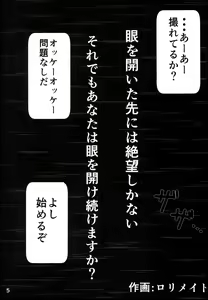 …あーあー
撮れてるか?
オッケーオッケー
問題なしだ
眼を開いた先には絶望しかない
それでもあなたは眼を開け続けますか?
ザザ…
よし
始めるぞ
作画:ロリメイト
5